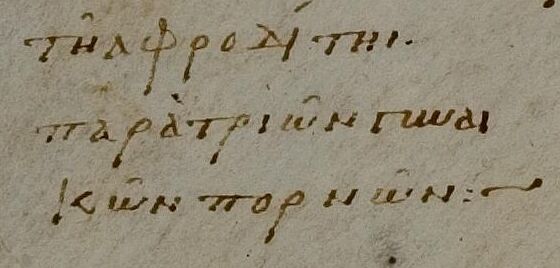 τῆ ἀφροδίτηι.
παρὰ τριῶν γυναι
κῶν πορνῶν:~